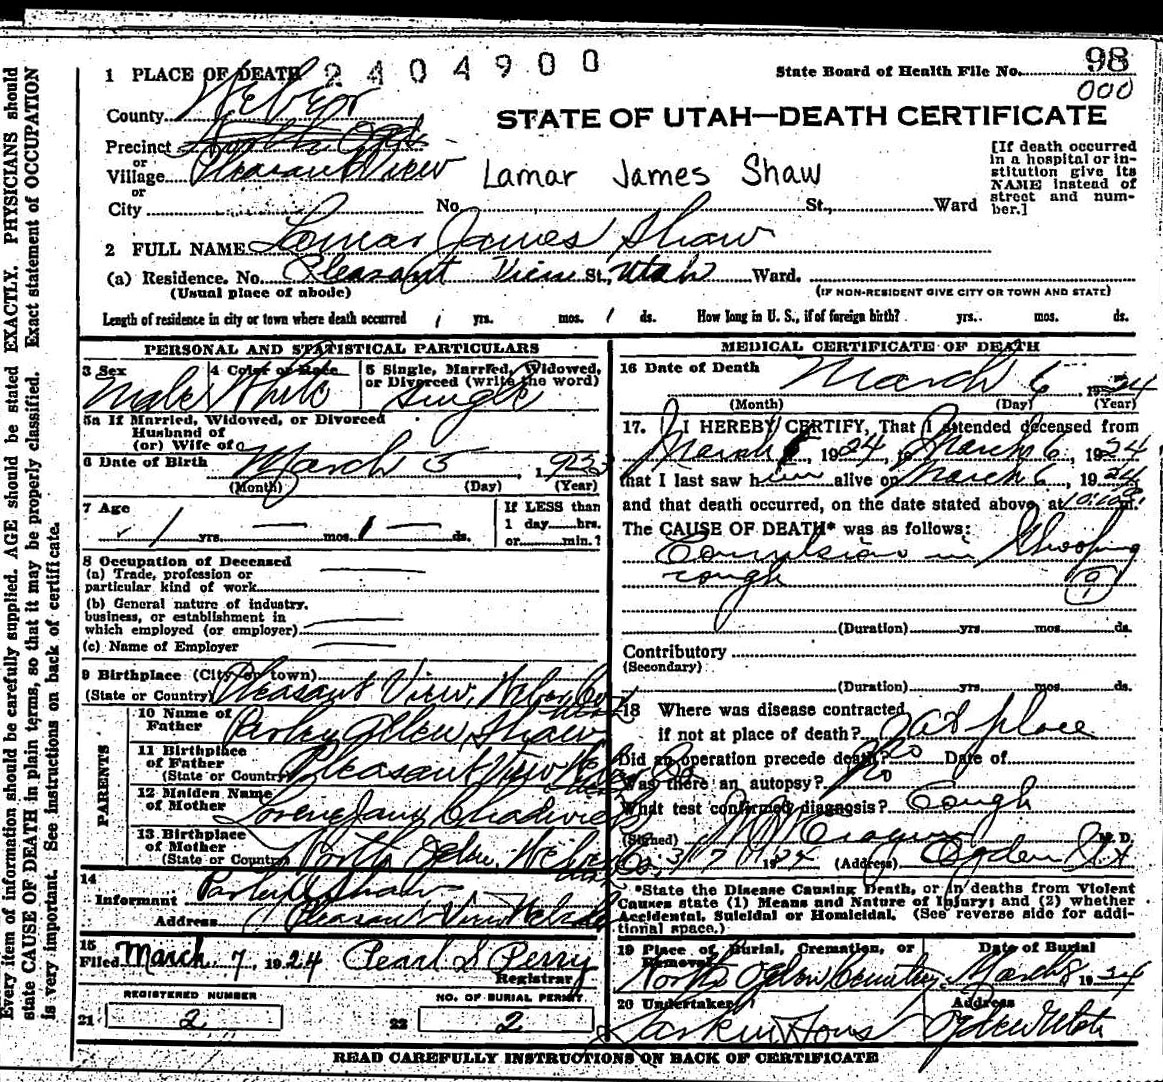 Every item of information should be carefully supplied. AGE should be stated EXACTLY. PHYSICIANS should
state CAUSE OF DEATH in plain terms, so that it may be properly classified. Exact statement of OCCUPATION
is very important. See instructions on back of certificate.
2404900
State Board of Health File No. 98
000
1 PLACE OF DEATH
County Weber
STATE OF UTAH—DEATH CERTIFICATE
Precinct North Ogden
or
Village Pleasant View
or
Lamar James Shaw
[If death occurred
in a hospital or in-
stitution give its
NAME instead of
street and num-
ber.]
City No. St., Ward
2 FULL NAME Lamar James Shaw
(a) Residence. No. Pleasant View St., Utah Ward.
(Usual place of abode) (IF NON-RESIDENT GIVE CITY OR TOWN AND STATE)
Length of residence in city or town where death occurred 1 yrs. mos. 1 ds. How long in U. S., if of foreign birth? yrs. mos. ds.
PERSONAL AND STATISTICAL PARTICULARS
3 Sex Male
4 Color or Race White
5 Single, Married, Widowed,
or Divorced (write the word)
Single
5a If Married, Widowed, or Divorced
Husband of
(or) Wife of
6 Date of Birth March 5 1923
(Month) (Day) (Year)
7 Age
1 yrs. — mos. 1 — ds.
If LESS than
1 day hrs.
or min.?
8 Occupation of Deceased
(a) Trade, profession or
particular kind of work
(b) General nature of industry,
business, or establishment in
which employed (or employer)
(c) Name of Employer
9 Birthplace (City or town)
(State or Country) Pleasant View, Weber Co
PARENTS
10 Name of
Father Parley Allen Shaw
11 Birthplace
of Father
(State or Country) Pleasant View Weber Co
12 Maiden Name
of Mother Lorene Jane Chadwick
13 Birthplace
of Mother
(State or Country) North Ogden, Weber Co.
14
Informant Parley A Shaw
Address Pleasant View Weber Co
15
Filed March 7, 1924 Pearl S Perry
Registrar
REGISTERED NUMBER NO. OF BURIAL PERMIT
21 2 22 2
MEDICAL CERTIFICATE OF DEATH
16 Date of Death March 6 1924
(Month) (Day) (Year)
17. I HEREBY CERTIFY, That I attended deceased from
March , 1924, to March 6, 1924
that I last saw him alive on March 6, 1924
and that death occurred, on the date stated above, at 10:10 P.m.
The CAUSE OF DEATH* was as follows:
Convulsions in Whooping
cough
9
1
(Duration) yrs. mos. ds.
Contributory
(Secondary)
(Duration) yrs. mos. ds.
18 Where was disease contracted
if not at place of death? at place
Did an operation precede death? No Date of
Was there an autopsy? No
What test confirmed diagnosis? Cough
(Signed) M. D.
3/7 (Address) Ogden Ut
*State the Disease Causing Death, or in deaths from Violent
Causes state (1) Means and Nature of Injury; and (2) whether
Accidental, Suicidal or Homicidal. (See reverse side for addi-
tional space.)
19 Place of Burial, Cremation, or
Removal
North Ogden Cemetery
Date of Burial
March 8 1924
20 Undertaker
Larkin & Sons
Address
Ogden Utah
READ CAREFULLY INSTRUCTIONS ON BACK OF CERTIFICATE